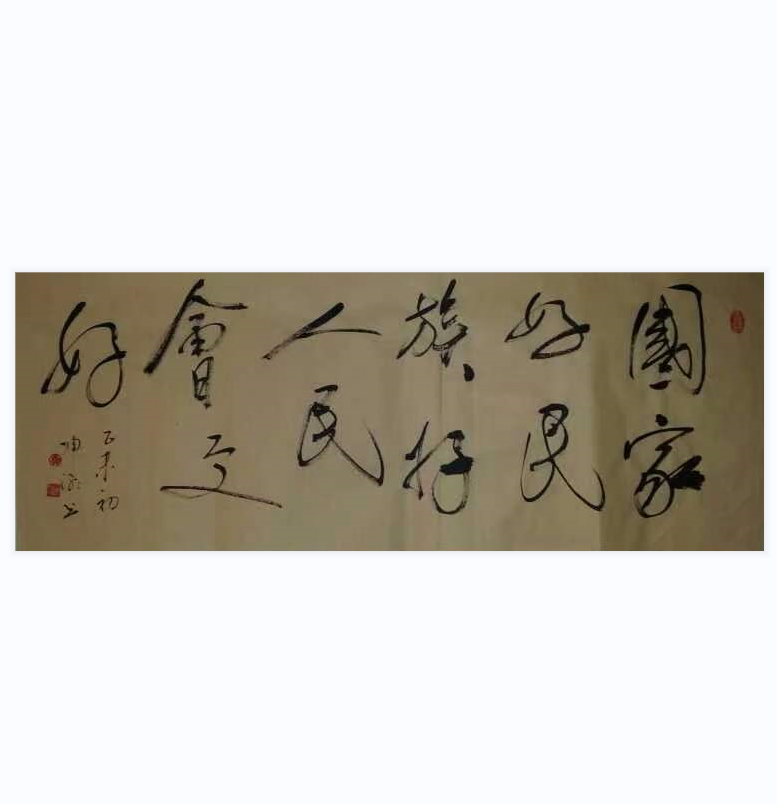 國家
好民
族好
人民
會更
好
乙未初